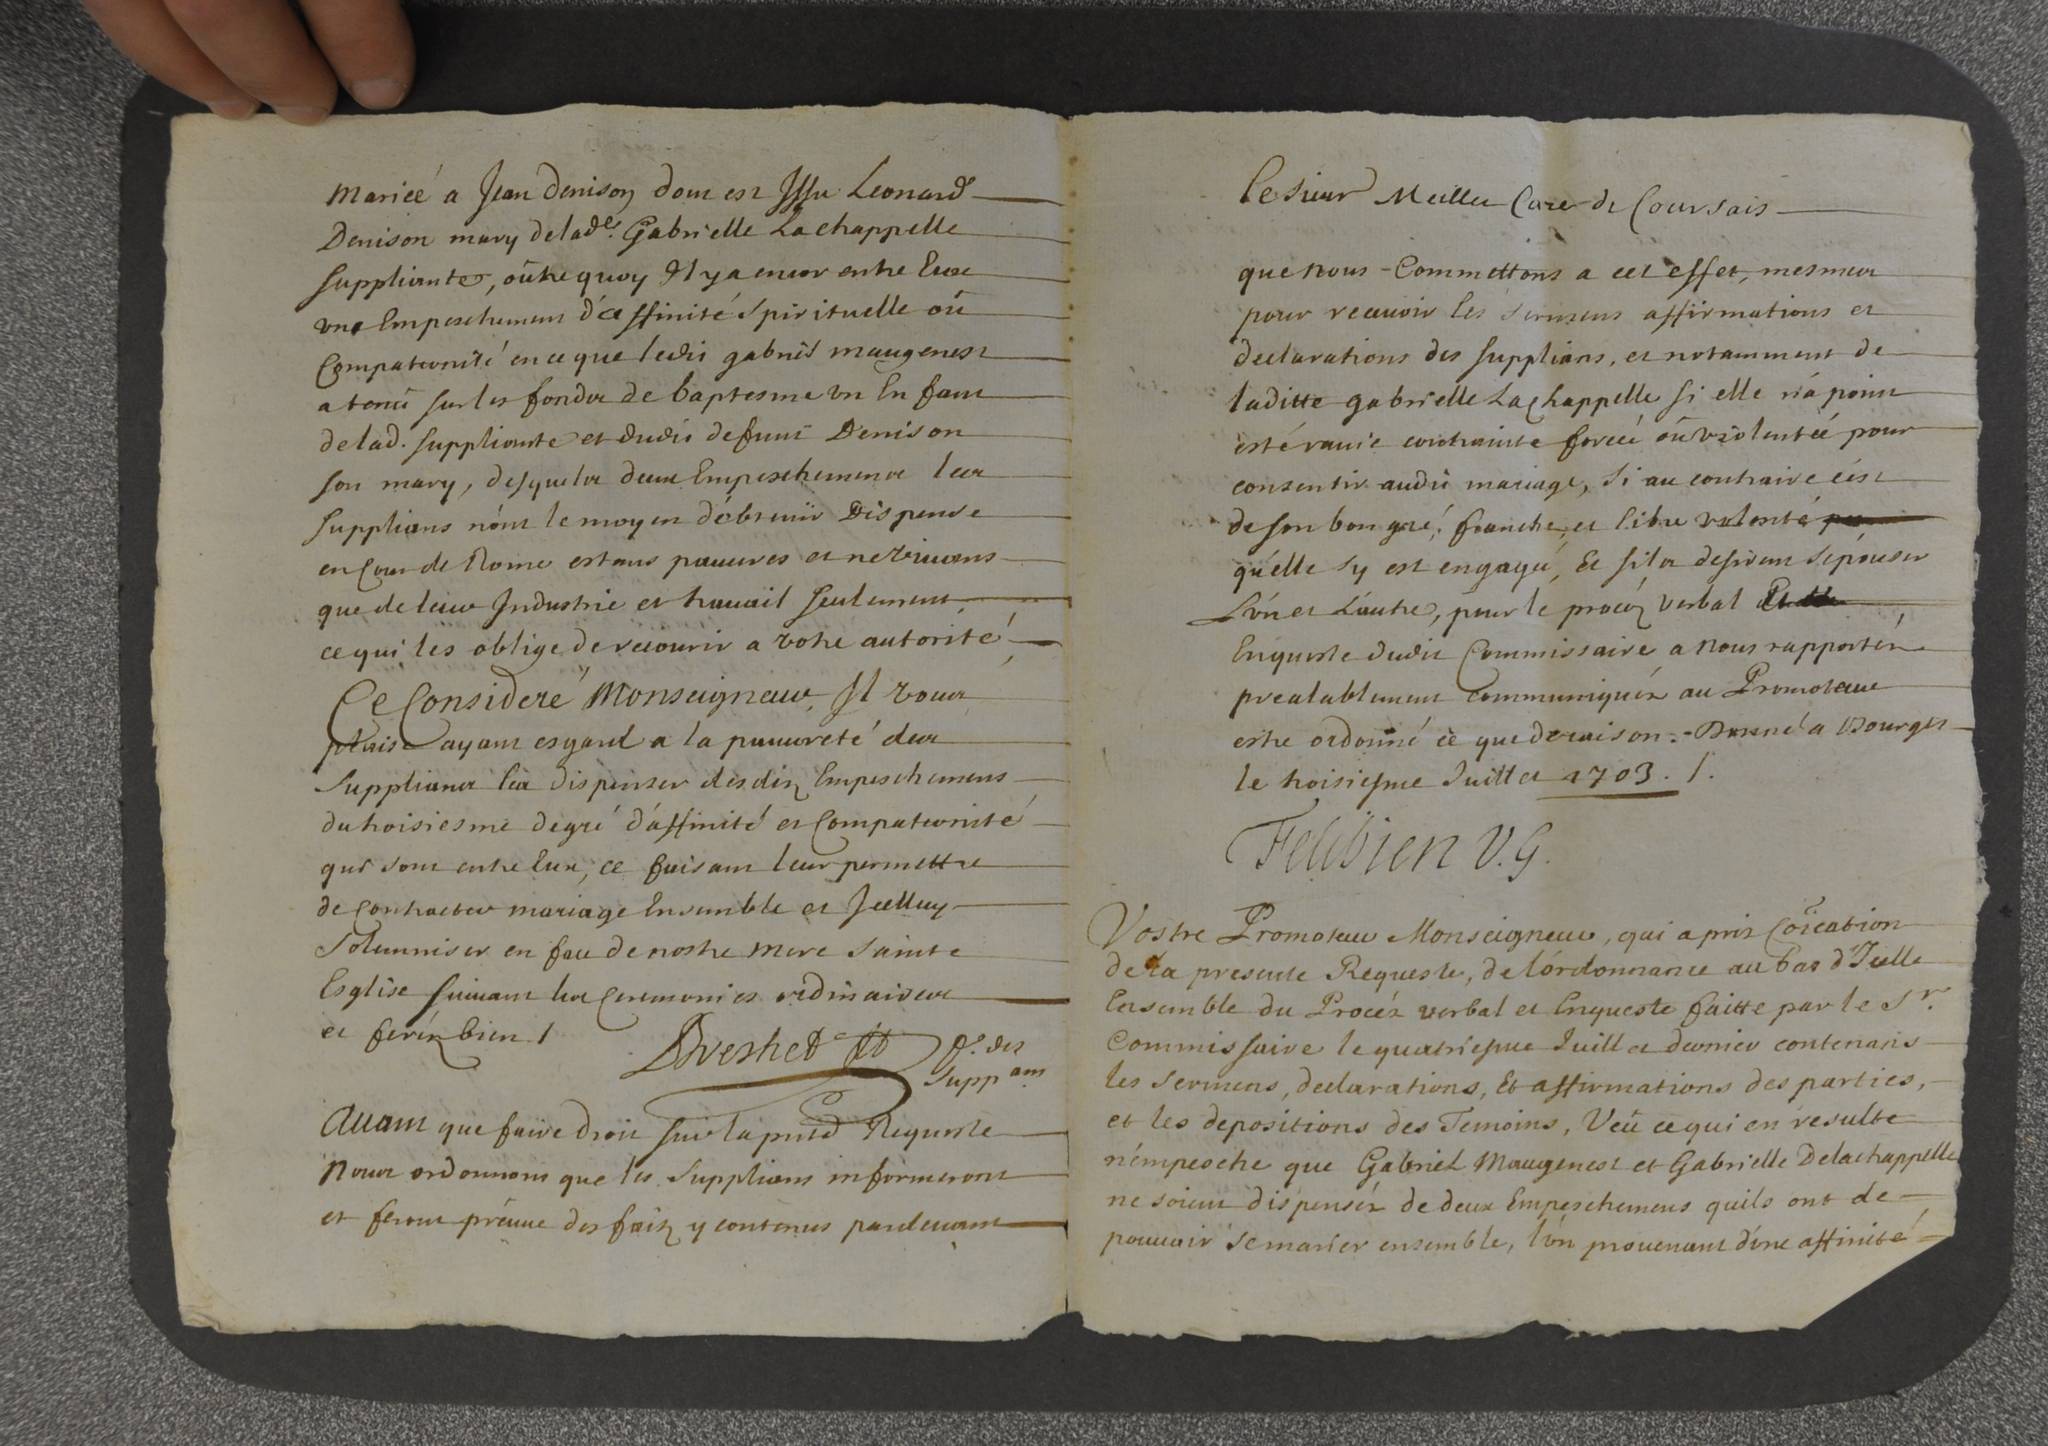 Mariéé a Jean Denison dont est Issu Leonard
Denison mary delade. Gabrielle Lachappelle
suppliante, oũtre quoy Il y a encor entre Eux
vne Empeschement d'affinité spirituelle où
Compaternité en ce que ledit gabriel maugenest
a tenũ sur les fonds de baptesme vn Enfant
de lad. suppliante et dudit defunt Denison
son mary, desquels deux Empeschemens les
supplians n'ont le moyen d'obtenir Dispense
en Cour de Rome estans pauures et ne viuans
que de leur Industrie et trauail seulement,
ce qui les oblige de recourir a vostre autorité,
Ce Consideré Monseigneur, Il vous
plaise ayant esgard a la pauureté des
Supplians les dispenser desdits Empeschemens
du troisiesme degré d'affinité et Compaternité
qui sont entre Eux, ce faisant leur permettre
de Contracter mariage Ensemble et Icelluy
solemniser en face de nostre mere sainte
Esglise suiuant les Ceremonies ordinaires
et ferez bien /
Pr. des
Suppans
Auant que faire droit sur la pnte Requeste
Nous ordonnons que les supplians informeront
et feront préuue des faits y contenus pardeuant
le sieur Meillet Curé de Coursais
que nous Commettons a cet effet, mesmes
pour receuoir les sermens affirmations et
declarations des supplians, et notamment de
laditte gabrielle Lachappelle si elle n'a point
esté rauie contrainte forcéé où violentéé pour
consentir audit mariage, si au contraire c'est
de son bon gré, franche, et libre volonté
qu'elle s'y est engagée, Et s'ils desirent s'épouser
L'vn et L'autre, pour le procez verbal
Enqueste dudit Commissaire a nous rapportéz
prealablement communiquéz au Promoteur
estre ordonné ce que de raison. Donné a Bourges
le troisiesme Juillet 1703. /.
Felibien V. G.
Vostre Promoteur Monseigneur, qui a pris Coïcation
de la presente Requeste, de l'ordonnance au bas d'Icelle
Ensemble du Procéz verbal et Enqueste faitte par le Sr.
Commissaire le quatriesme Juillet dernier contenans
les sermens, declarations, Et affirmations des parties,
et les depositions des Temoins, Veü ce qui en resulte
n'empesche que Gabriel Maugenest et Gabrielle Delachappelle
ne soient dispenséz de deux Empeschemens quils ont de
pouuoir se marier ensemble, l'vn prouenant d'vne affinité